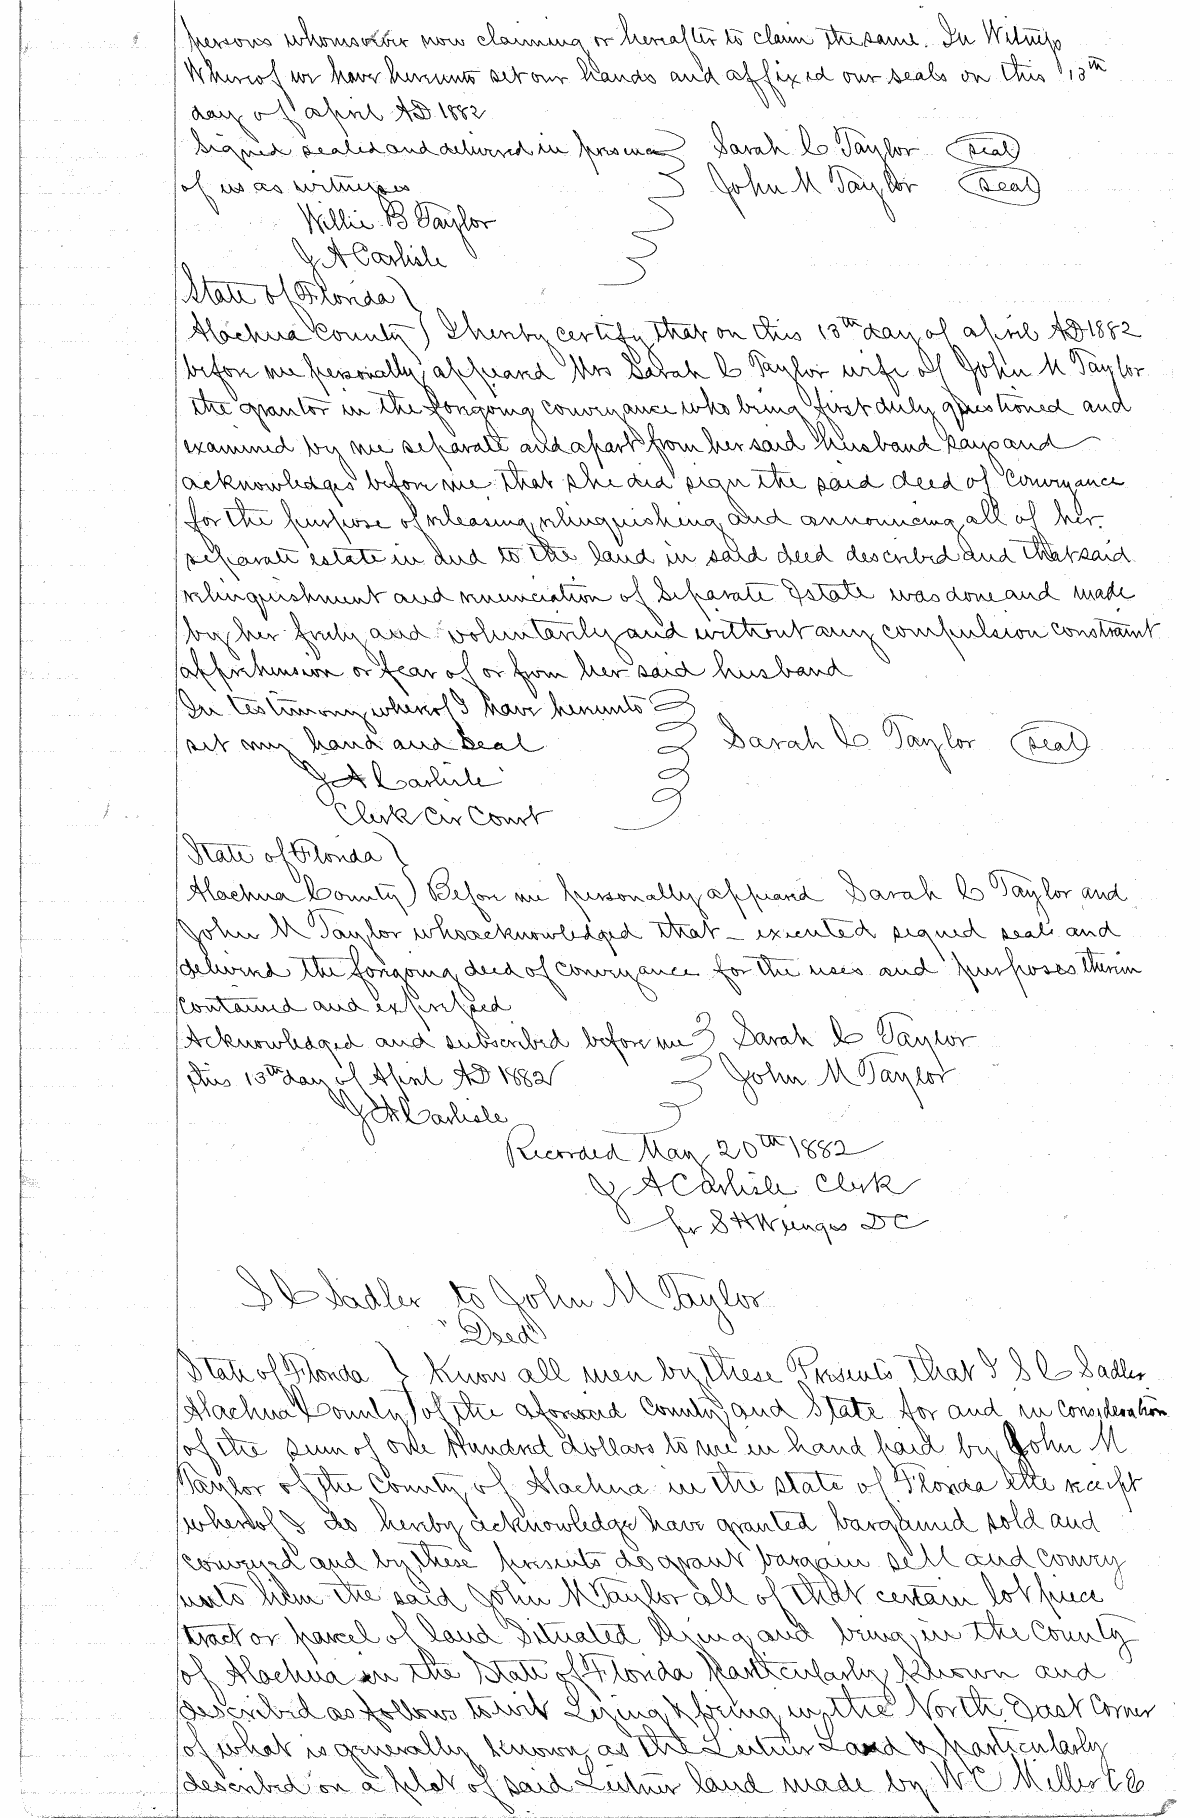 persons whomsoever now claiming or hereafter to claim the same. In Witness
Whereof we have hereunto set our hands and affixed our seals on this 13th
day of april AD 1882
Signed sealed and delivered in presence Sarah C Taylor seal
of us as witnesses John M Taylor seal
Willie B Taylor
J A Carlisle
State of Florida
Alachua County I hereby certify that on this 13th day of april AD 1882
before me personally appeared Mrs Sarah C Taylor wife of John M Taylor
the grantor in the foregoing conveyance who being first duly questioned and
examined by me separate and apart from her said husband says and
acknowledges before me that she did sign the said deed of conveyance
for the purpose of releasing relinquishing and announcing all of her
separate estate in and to the land in said deed described and that said
relinquishment and renunciation of Separate Estate was done and made
by her freely and voluntarily and without any compulsion constraint
apprehension or fear of or from her said husband
In testimony whereof I have hereunto
set my hand and seal Sarah C Taylor seal
J A Carlisle
Clerk Cir Court
State of Florida
Alachua County Before me personally appeared Sarah C Taylor and
John M Taylor who acknowledged that - executed signed seal and
delivered the foregoing deed of conveyance for the uses and purposes therein
contained and expressed
Acknowledged and subscribed before me Sarah C Taylor
this 13th day of April AD 1882 John M Taylor
J A Carlisle
Recorded May 20th 1882
J A Carlisle Clerk
per S H Wienges DC
S C Sadler to John M Taylor
"Deed"
State of Florida Know all men by these Presents that I S C Sadler
Alachua County of the aforesaid County and State for and in consideration
of the sum of one Hundred dollars to me in hand paid by John M
Taylor of the County of Alachua in the state of Florida the receipt
whereof I do hereby acknowledge have granted bargained sold and
conveyed and by these presents do grant bargain sell and convey
unto him the said John M Taylor all of that certain lot piece
tract or parcel of land Situated lying and being in the County
of Alachua in the State of Florida particularly known and
described as follows to wit Lying & being in the North East Corner
of what is generally known as the Leitner Land & particularly
described on a plot of said Leitner land made by W C Miller C E